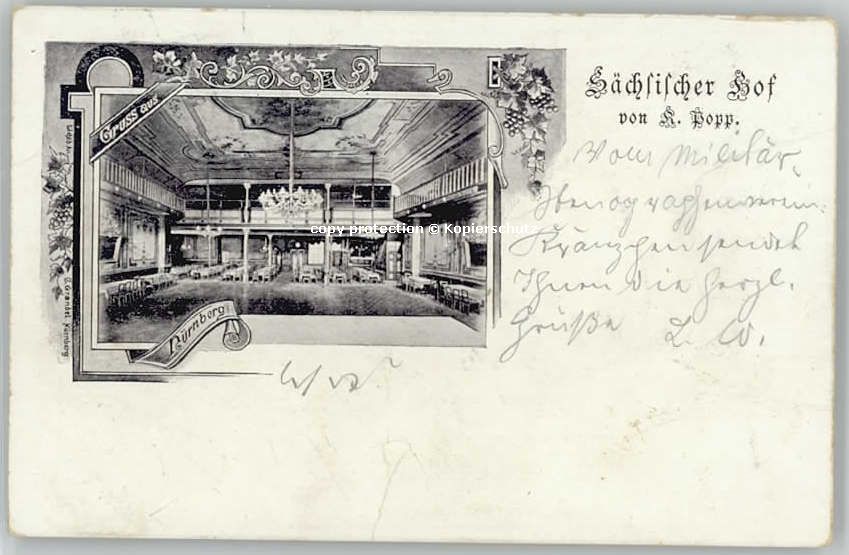 Gruss aus
Nürnberg
Sächsischer Hof
von K. Popp.
Vom Militär-
Stenographenverein-
Kränzchen sendet
Ihnen die herzl.
Grüße L. W.
copy protection © Kopierschutz